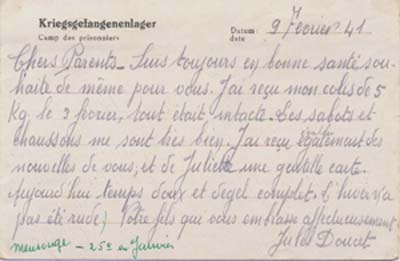 Kriegsgefangenenlager
Camp des prisonniers
Datum: 9 Fevrier 41
date
Chers Parents_ Suis toujours en bonne santé sou-
haite de même pour vous. J'ai reçu mon colis de 5
Kg. le 3 février, tout était intacte. Les sabots et
chaussons me sont très bien. J'ai reçu également des
nouvelles de vous, et de Juliette une gentille carte.
Aujourd'hui temps doux et degel complet. L'hiver n'a
pas été rude) Votre fils qui vous embrasse affectueusement
Jules Doucet
mensonge - 25° en Janvier